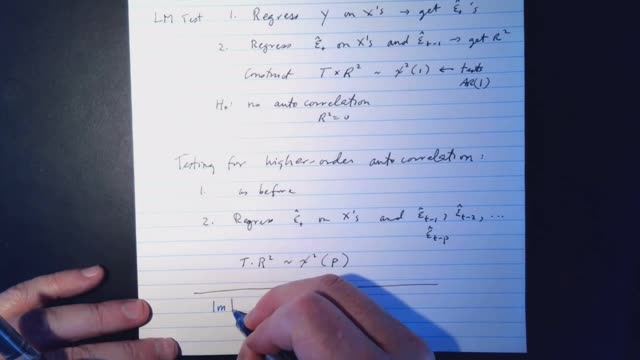 LM Test 1. Regress Y on X's → get ε̂ₜ's
2. Regress ε̂ₜ on X's and ε̂ₜ₋₁ → get R²
Construct T × R² ~ χ²(1) ← tests
AR(1)
H₀: no autocorrelation
R² = 0
Testing for higher-order autocorrelation:
1. as before
2. Regress ε̂ₜ on X's and ε̂ₜ₋₁, ε̂ₜ₋₂, ...
ε̂ₜ₋ₚ
T · R² ~ χ²(p)
Im